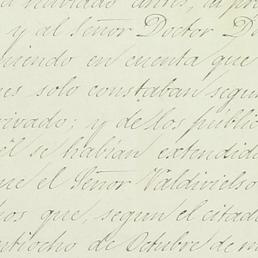 y al Señor Doctor D
niendo en cuenta que
solo constaban segun
rivado; y de los public
él se habian extendido
ue el Señor Valdivielso
os que, segun el citado
ntiocho de Octubre de m